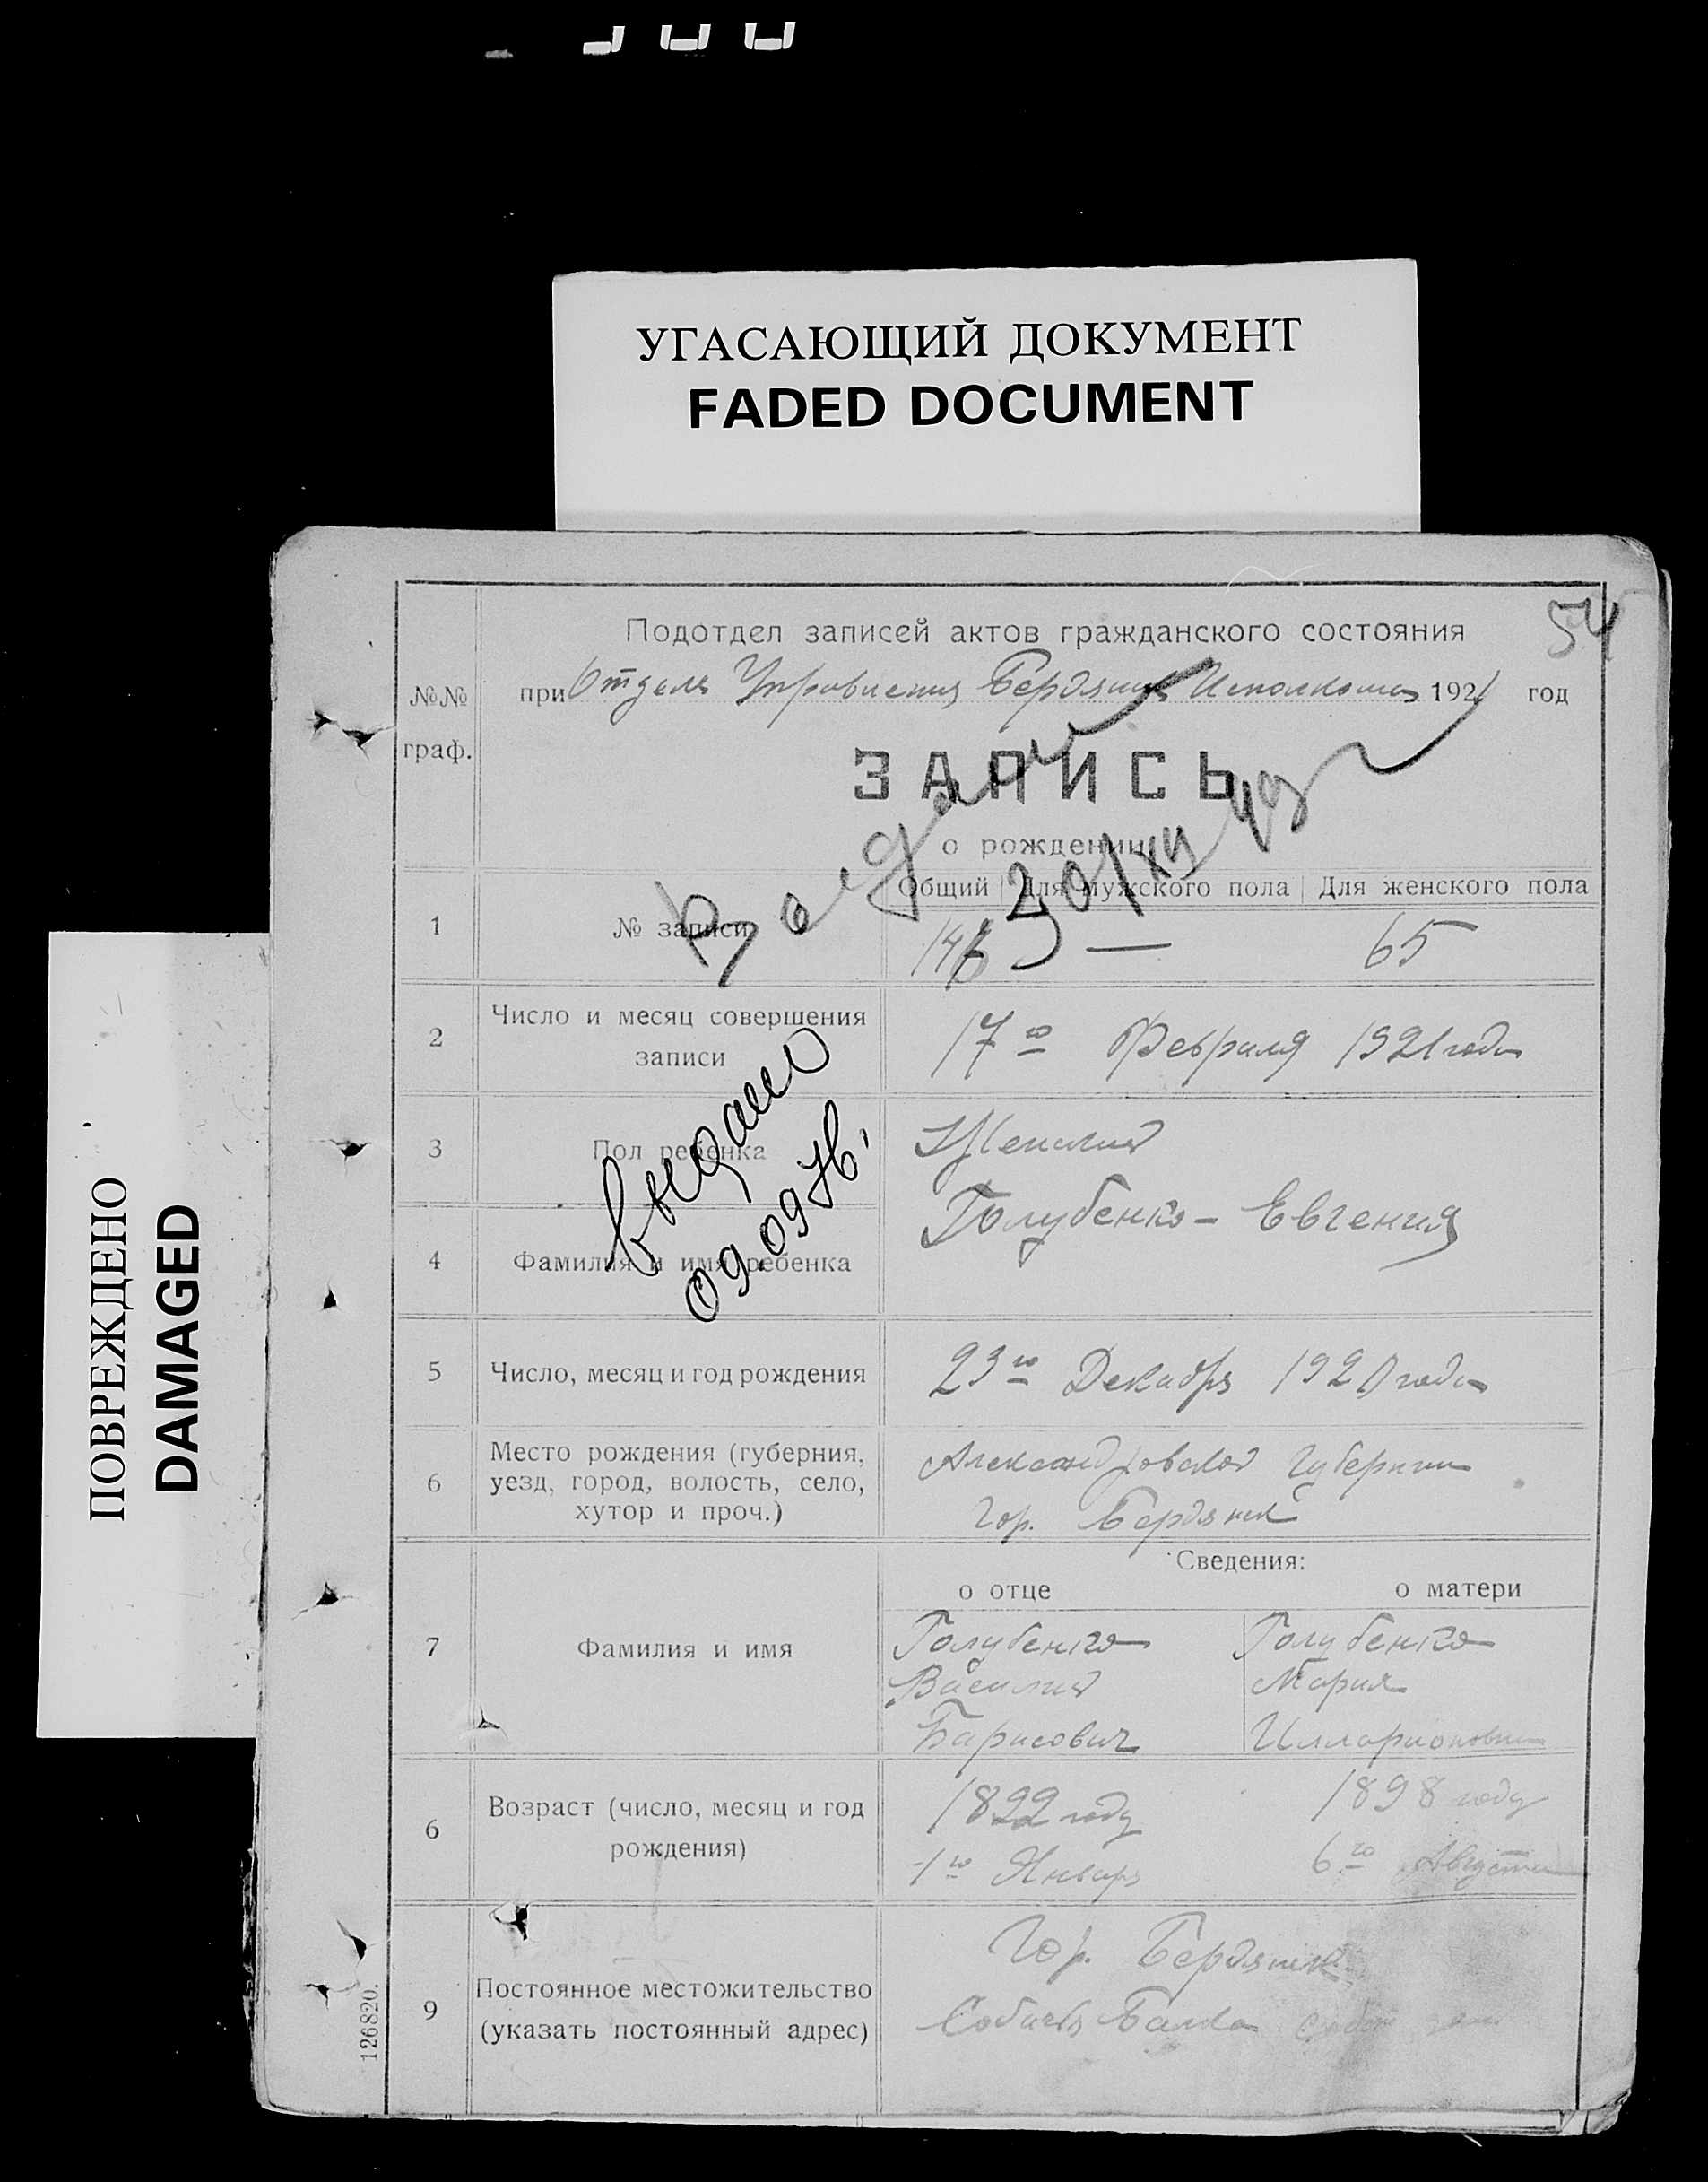 УГАСАЮЩИЙ ДОКУМЕНТ
FADED DOCUMENT
ПОВРЕЖДЕНО
DAMAGED
54
Подотдел записей актов гражданского состояния
№№ граф.
при Отделе Управления Бердянск Исполкома 1921 год
ЗАПИСЬ
о рождении
Общий Для мужского пола Для женского пола
1 № записи 146 — 65
30/XII
2 Число и месяц совершения
записи
17го Февраля 1921 года
выдано
09.09
3 Пол ребенка Женский
4 Фамилия и имя ребенка Голубенко - Евгения
5 Число, месяц и год рождения 23го Декабря 1920 года
6 Место рождения (губерния,
уезд, город, волость, село,
хутор и проч.)
Александровской Губернии
гор. Бердянск
Сведения:
о отце о матери
7 Фамилия и имя
Голубенко Голубенко
Василий Мария
Барисович Илларионовна
6 Возраст (число, месяц и год
рождения)
1899 году 1898 году
1го Январь 6го Августа
9 Постоянное местожительство
(указать постоянный адрес)
Гор. Бердянск
Балка
126820.